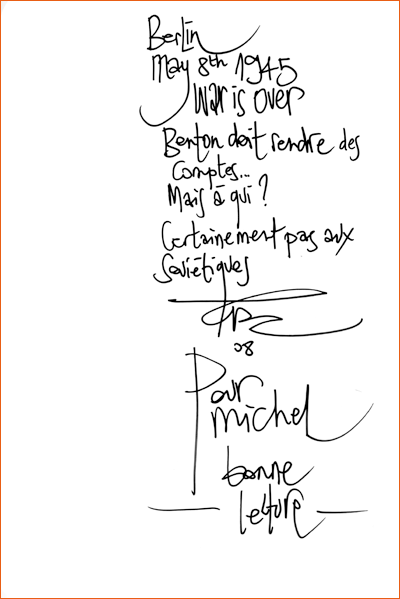 Berlin
May 8th 1945
War is over
Benton doit rendre des
Comptes...
Mais à qui ?
Certainement pas aux
Soviétiques
08
Pour
michel
bonne
lecture